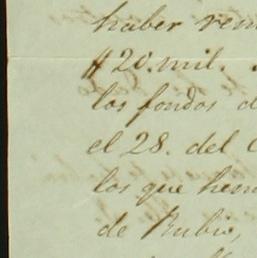 haber rem
$20.mil.
los fondos d
el 28. del C
los que hem
de Rubio,